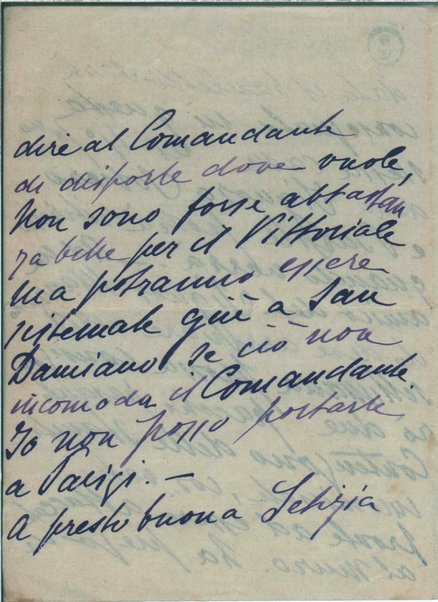 dire al Comandante
di disporle dove vuole,
Non sono forse abbastan
za belle per il Vittoriale
ma potranno essere
sistemate giù a San
Damiano se ciò non
incomoda il Comandante.
Io non posso portarle
a Parigi. —
A presto buona Letizia